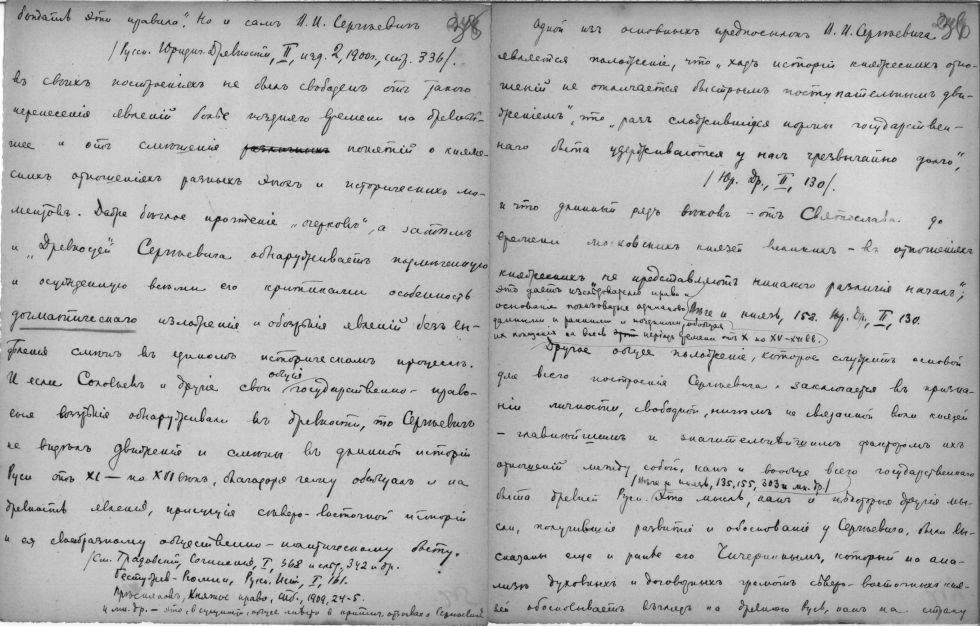 блюдать это правило". Но и самъ П. И. Сергѣевичъ
/Русск. Юридич. Древности, II, изд. 2, 1900г., стр. 336/.
въ своихъ построеніяхъ не былъ свободенъ отъ такого
перенесенія явленій болѣе поздняго времени на древнѣй-
шее и отъ смѣшенія понятій о княже-
скихъ отношеніяхъ разныхъ эпохъ и историческихъ мо-
ментовъ. Даже бѣглое прочтеніе "очерковъ", а затѣмъ
и "Древностей" Сергѣевича обнаруживаетъ
и осужденную всѣми его критиками особенность
догматическаго изложенія и явленій безъ вы-
явленія смѣнъ въ единомъ историческомъ процессѣ.
И если Соловьевъ и другіе свои общіе государственно-право-
выя воззрѣнія обнаруживали въ древности, то Сергѣевичъ
не видѣлъ движенія и смѣны въ длинной исторіи
Руси отъ XI — по XVI вѣкъ, благодаря чему обобщалъ и на
древность явленія, присущія сѣверо-восточной исторіи
и ея своебразному общественно-политическому быту.
/См. Градовскій, Сочиненія, I, 368 и слѣд., 342 и др.
Бестужев-Рюмин, Русс. Ист., I, 161.
Прѣсняковъ, Княжое право, Спб., 1909, 24-5.
и мн. др. - это, въ сущности, общее мѣсто въ критич. отзывахъ о Сергѣевичѣ
238
Одной изъ основныхъ предпосылокъ П. И. Сергѣевича
является положеніе, что "ходъ исторіи княжескихъ отно-
шеній не отличается быстрымъ поступательнымъ дви-
женіемъ", что "разъ сложившіяся нормы государствен-
наго быта удерживаются у насъ чрезвычайно долго",
/Юр. Др., II, 130/.
и что длинный рядъ вѣковъ - отъ Святослава до
времени московскихъ князей великихъ - въ отношеніяхъ
княжескихъ не представляютъ никакого различія началъ";
это даетъ изслѣдователю право и
основаніе пользоваться одинаково Вѣче и князь, 153. Юр. Др., II, 130.
данными и ранними и поздними, обобщая
ихъ на весь періодъ времени отъ X по XV-XVI вв.
Другое общее положеніе, которое служитъ основой
для всего построенія Сергѣевича, заключается въ призна-
ніи личности, свободной, ничѣмъ не связанной воли князей
- главнѣйшимъ и значительнѣйшимъ факторомъ ихъ
отношеній между собой, какъ и вообще всего государственнаго
/Вѣче и князь, 135, 155, 303 и мн. др./
быта древней Руси. Эта мысль, какъ и нѣкоторые другія мы-
сли, получившіе развитіе и обоснованіе у Сергѣевича, были вы-
сказаны еще и ранѣе его Чичеринымъ, который по ана-
лизу духовныхъ и договорныхъ грамотъ сѣверо-восточныхъ кня-
зей обосновываетъ взглядъ на древнюю Русь, какъ на страну